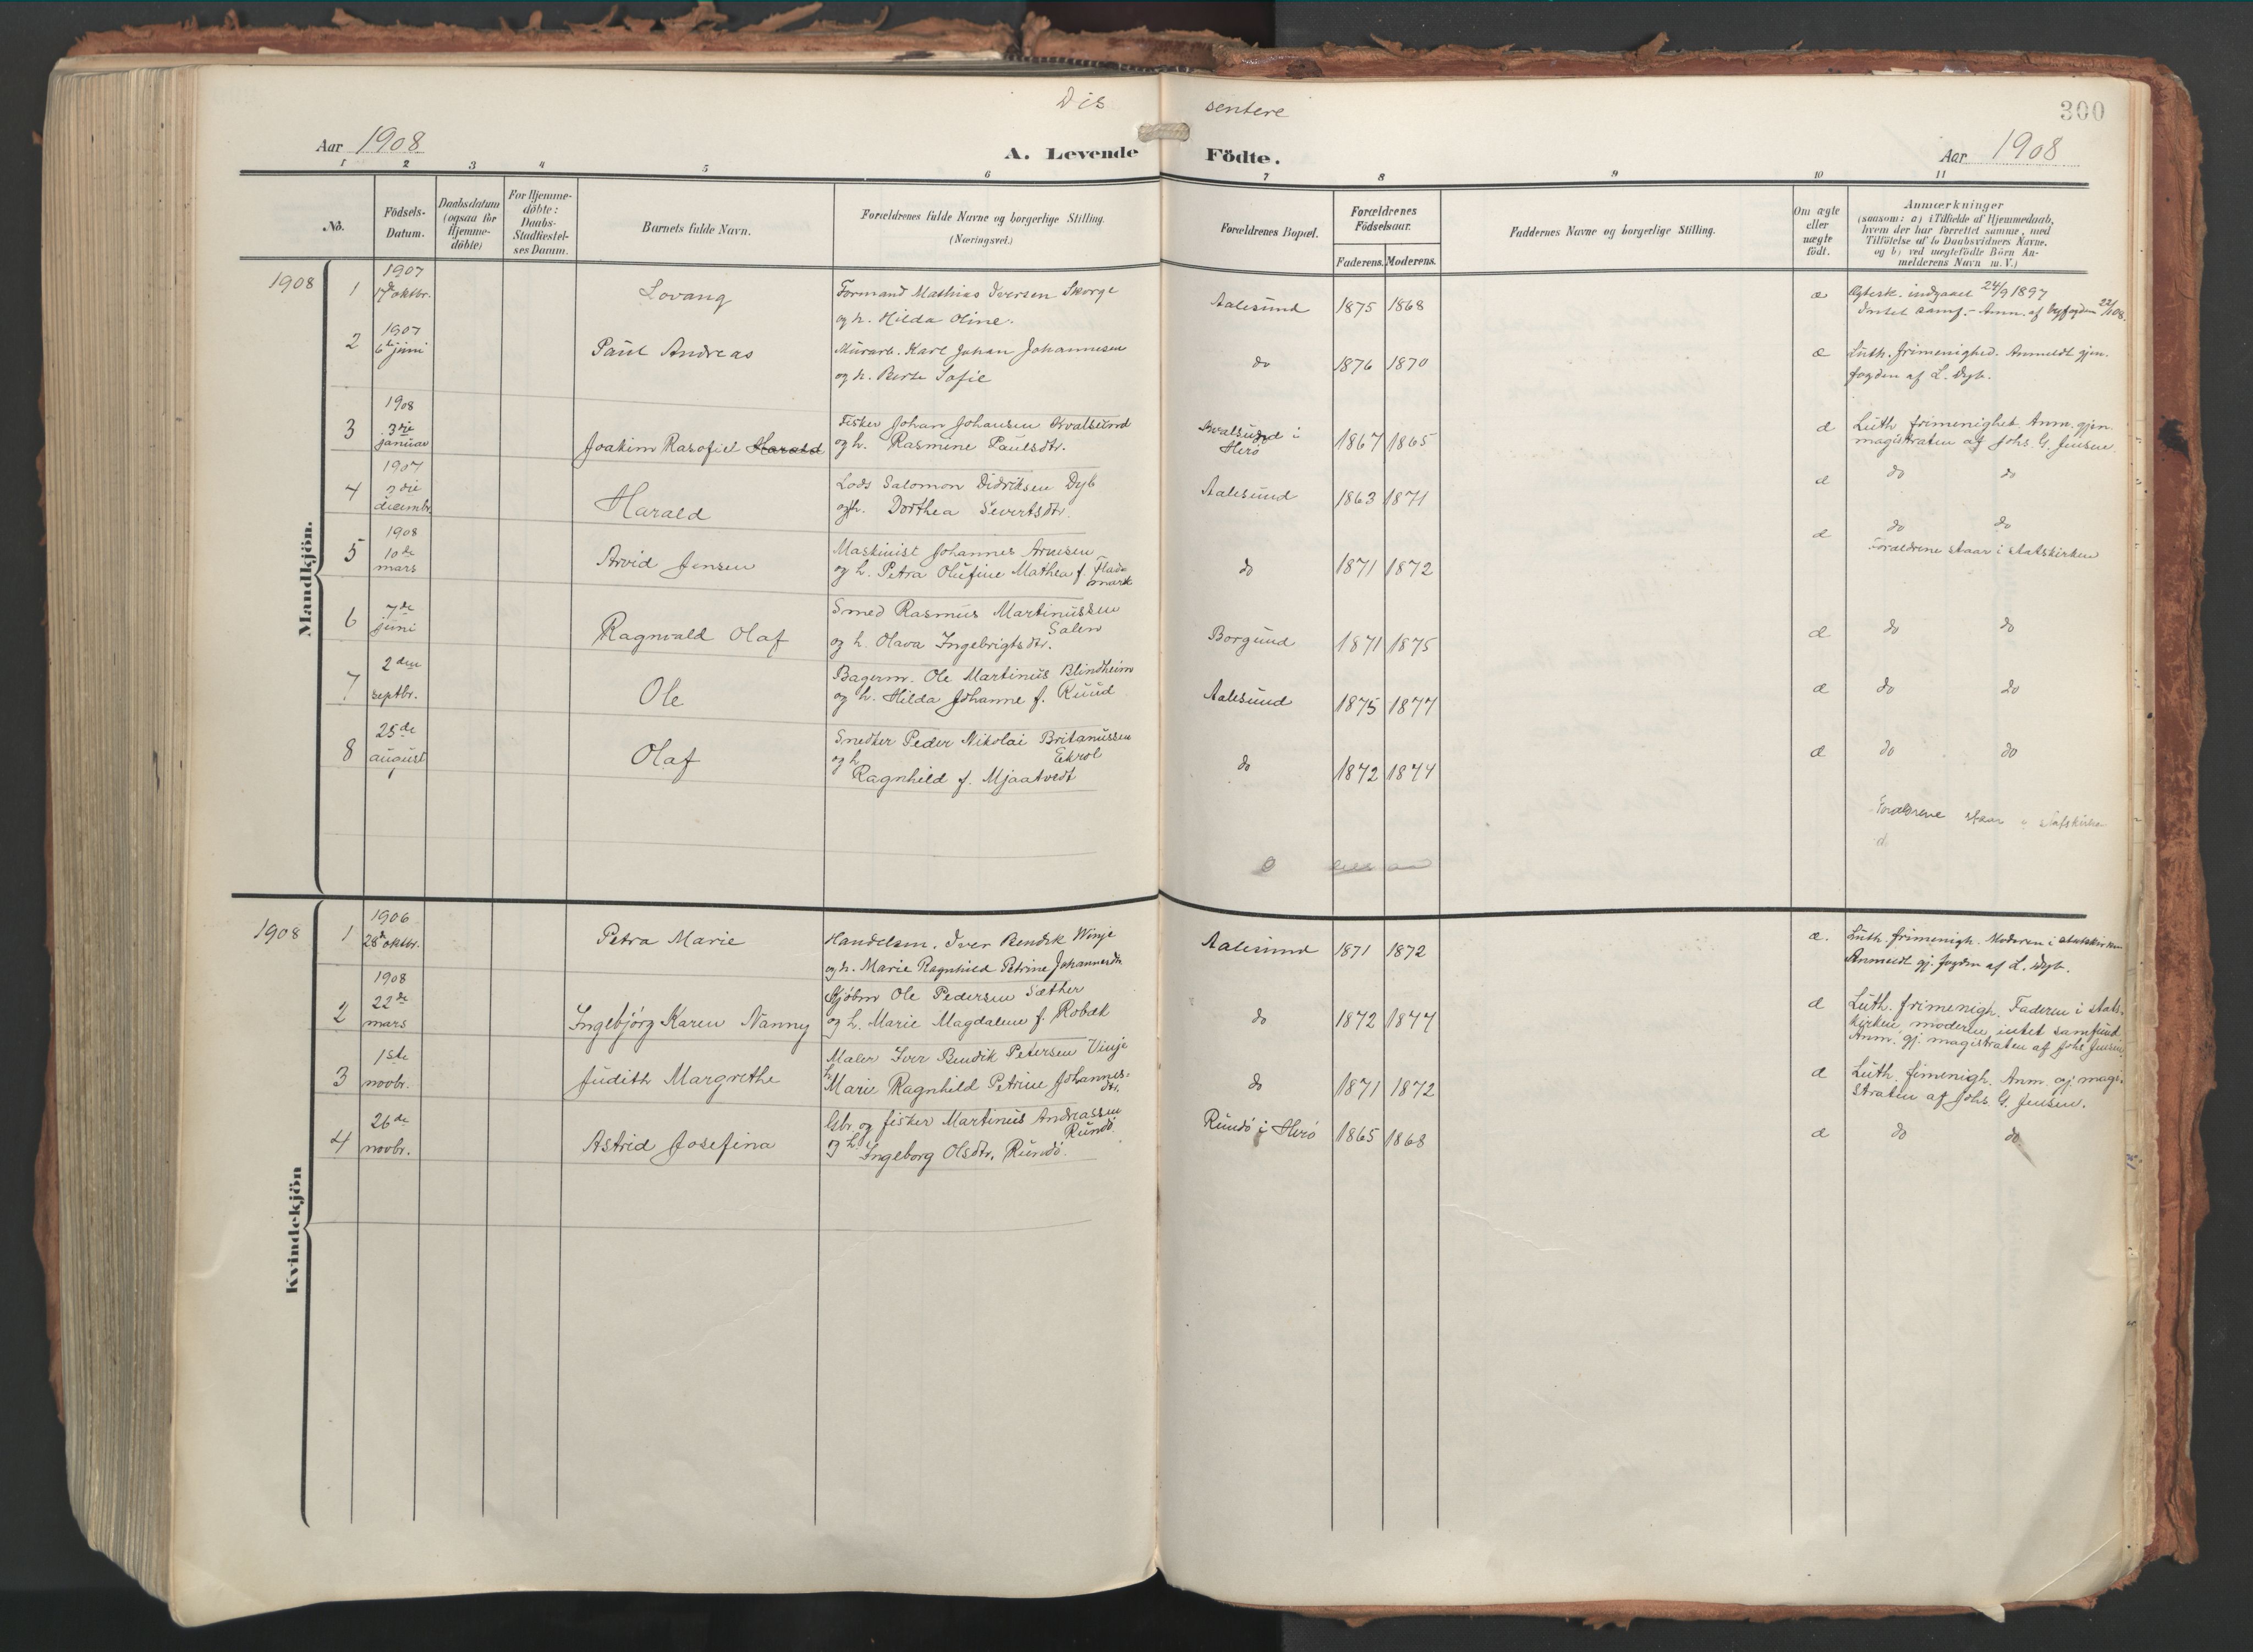 Dissentere
300
Aar 1908
A. Levende Födte.
Aar 1908
1 2 3 4 5 6 7 8 9 10 11
No.
Födsels-Datum.
Daabsdatum (ogsaa for Hjemme-döbte)
For Hjemme-döbte: Daabs-Stadfæstel-ses Datum.
Barnets fulde Navn.
Forældrenes fulde Navne og borgerlige Stilling.
(Næringsvei.)
Forældrenes Bopæl.
Forældrenes Födselsaar.
Faderens. Moderens.
Faddernes Navne og borgerlige Stilling.
Om ægte eller uægte födt.
Anmærkninger
(saasom: a) i Tilfælde af Hjemmedaab,
hvem der har forrettet samme, med
Tilföielse af to Daabsvidners Navne.
og b) ved uægtefödte Börn An-
melderens Navn m. V.)
Mandkjön.
1908
1 1907 17de oktbr. Lovang Formand Mathias Iversen Skorge
og h. Hilda Oline. Aalesund 1875 1868 æ Ægtesk. indgaaet 24/9 1897
Intet samf. - Anm. af byfogden 22/1 08.
2 1907 6te juni Paul Andreas Murarb. Karl Johan Johannesen
og h. Berte Sofie do 1876 1870 æ Luth. frimenighed. Anmeldt gjen.
fogden af L. Dyb.
3 1908 3die januar Joakim Rasofiel Harald Fisker Johan Johansen Kvalsund
og h. Rasmine Paulsdtr. Kvalsund i Herö 1867 1865 æ Luth frimenighet. Anm. gjen.
magistraten af Johs. G. Jensen
4 1907 3die decembr. Harald Lods Salomon Didriksen Dyb
og h. Dorthea Sivertsdtr. Aalesund 1863 1871 æ do do
5 1908 10de mars Arvid Jensen Maskinist Johannes Arnesen
og h. Petra Olufine Mathea f. Flademark do 1871 1872 æ do do
Forældrene staar i statskirken
6 7de juni Ragnvald Olaf Smed Rasmus Martinussen Salen
og h. Olava Ingebrigtsdtr. Borgund 1871 1875 æ do do
7 2den septbr. Ole Bagerm. Ole Martinus Blindheim
og h. Hilda Johanne f. Ruud Aalesund 1875 1877 æ do do
8 25de august Olaf Snedker Peder Nikolai Britanussen Ekrol
og h Ragnhild f. Mjaatvedt do 1872 1874 æ do do
Forældrene staar i statskirken
Kvindekjön
1908
1 1906 28de oktbr. Petra Marie Handelsm. Iver Bendik Winje
og h. Marie Ragnhild Petrine Johannesdtr Aalesund 1871 1872 æ. Luth. frimenigh. Moderen i statskirken
Anmeldt gj. fogden af L. Dyb.
2 1908 22de mars Ingebjörg Karen Nanny Kjöbm Ole Pedersen Sæther
og h. Marie Magdalene f. Robæk do 1872 1877 æ Luth. frimenigh. Faderen i stats-
kirken, moderen intet samfund
Anm. gj. magistraten af Johs Jensen
3 1ste novbr. Judith Margrethe Maler Iver Bendik Petersen Vinje
h Marie Ragnhild Petrine Johannes-dtr. do 1871 1872 æ Luth. fimenigh. Anm. gj. magi-
straten af Johs. G. Jensen.
4 26de novbr. Astrid Josefina Gbr. og fisker Martinus Andreassen Rundö
og h. Ingeborg Olsdtr. Rundö. Rundö i Herö 1865 1868 æ do do